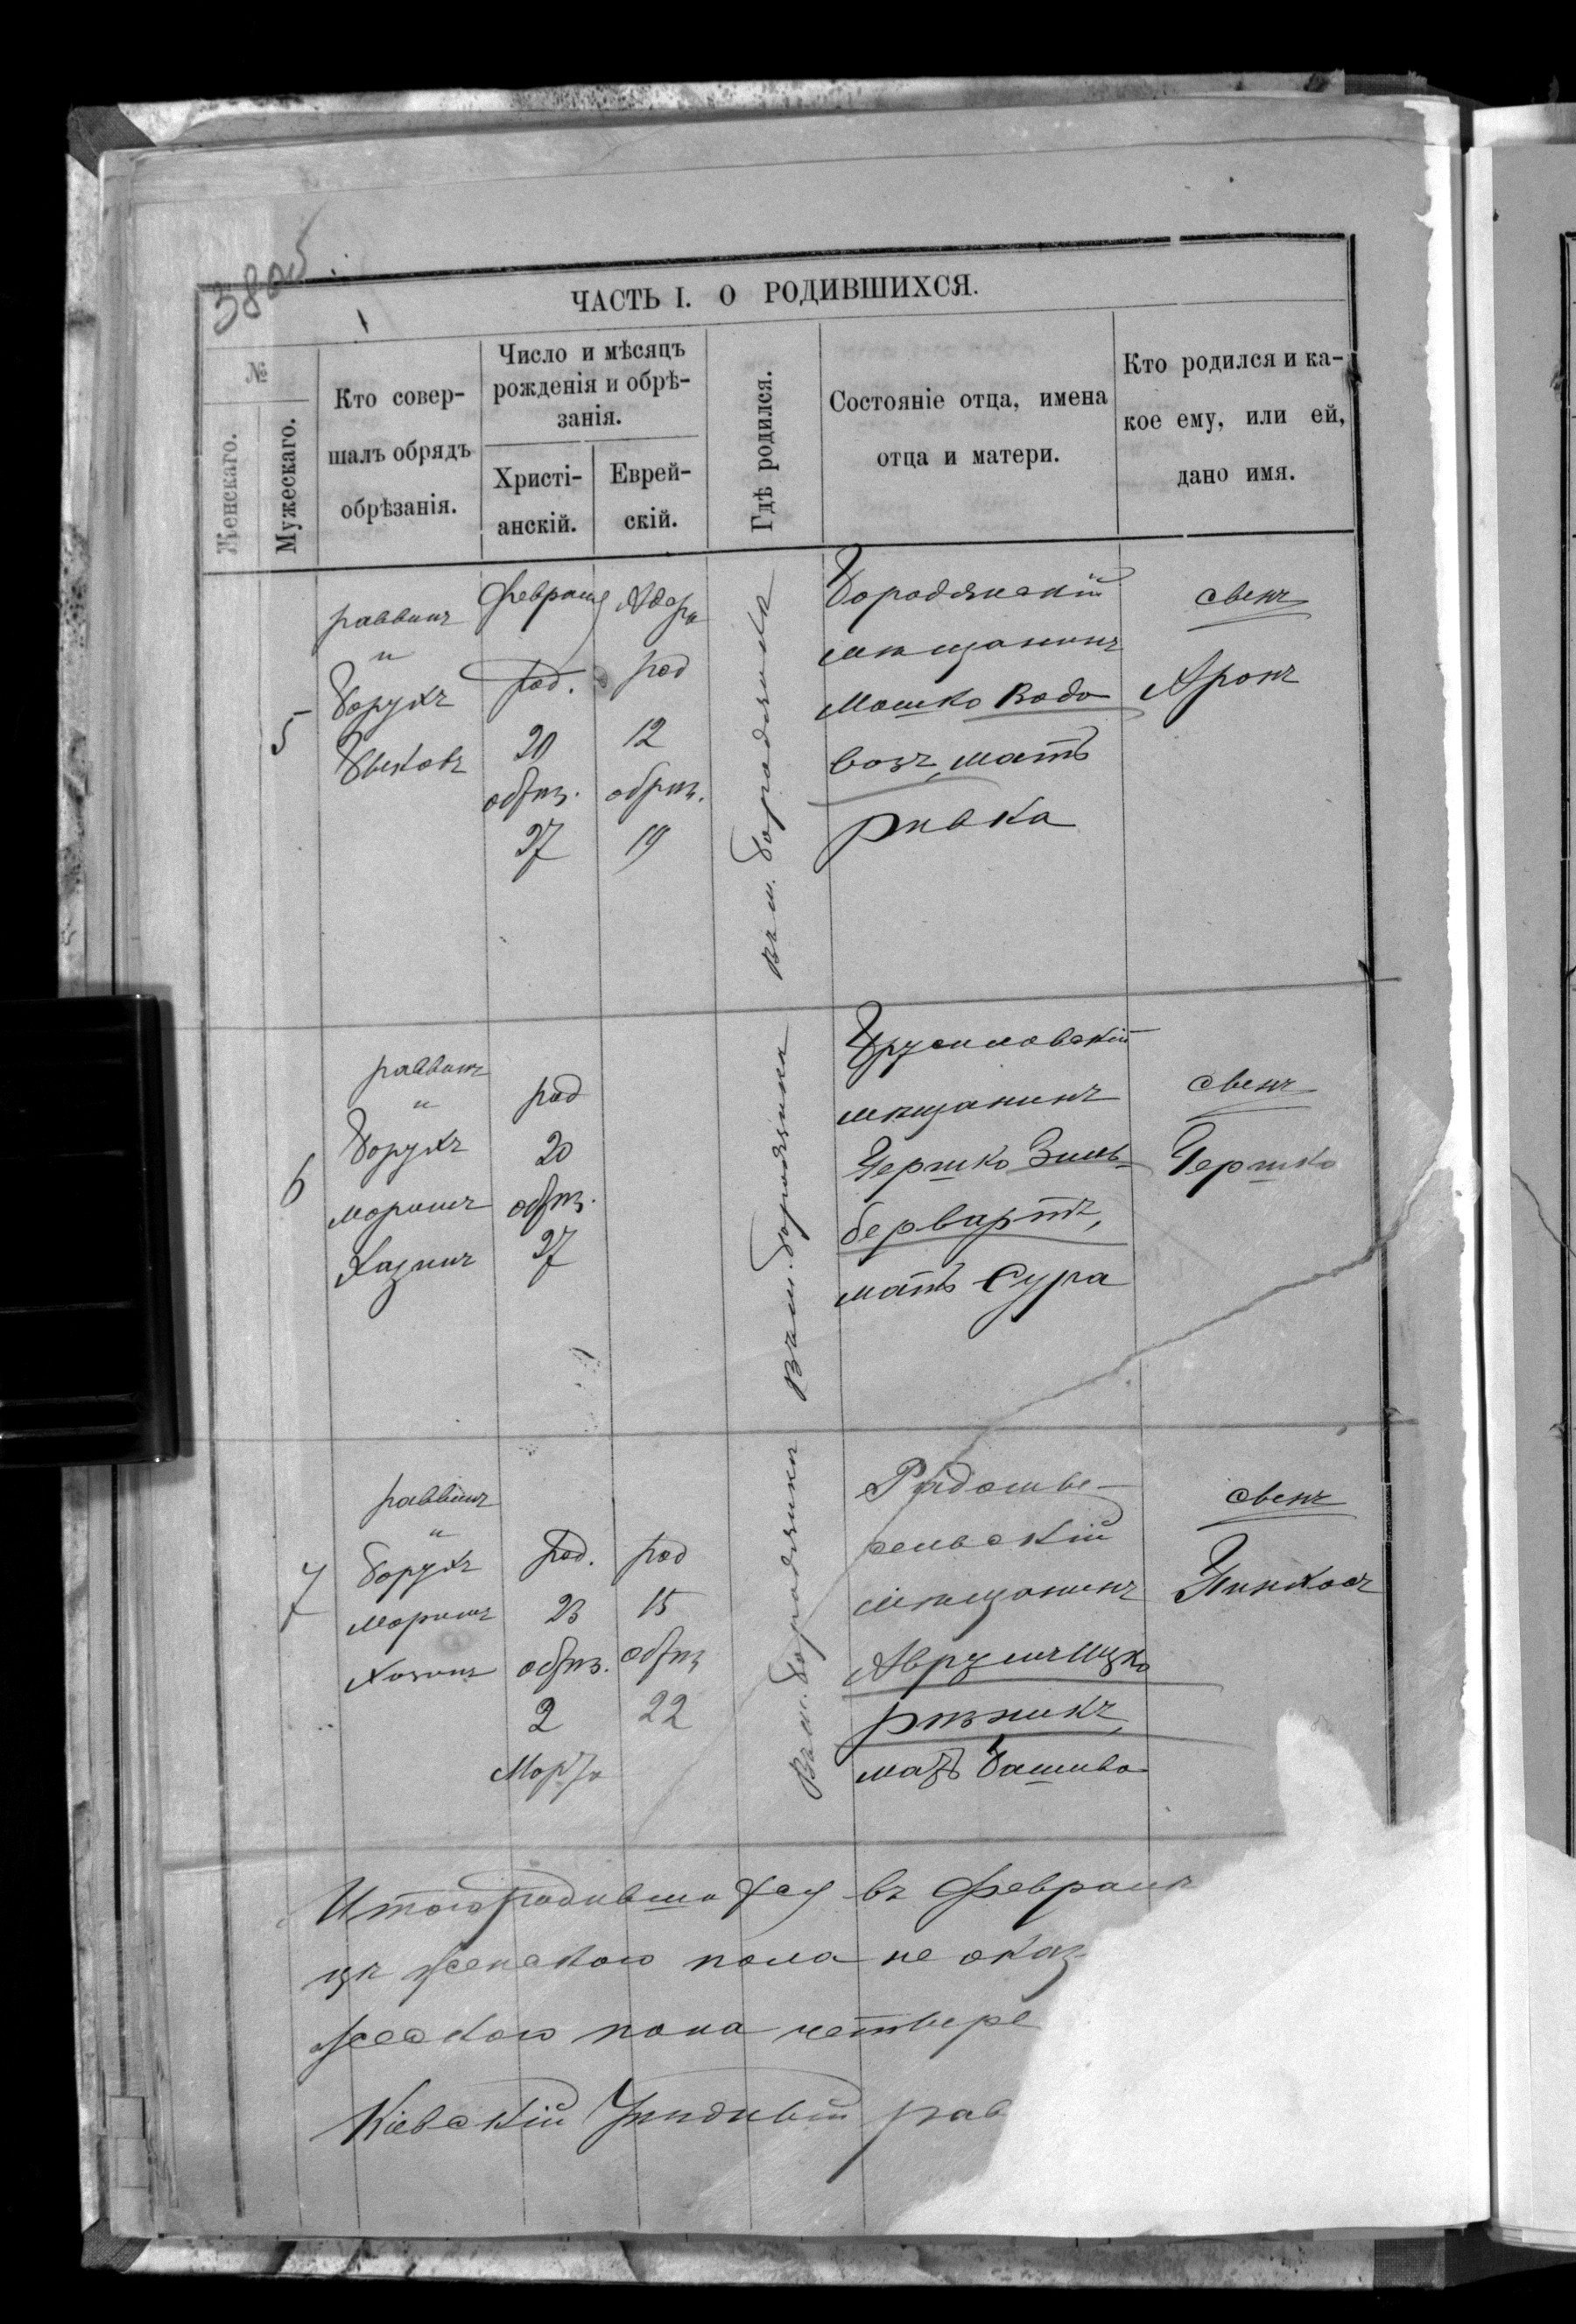 38об
ЧАСТЬ I. О РОДИВШИХСЯ.
№
Женскаго.
Мужескаго.
Кто совер-
шалъ обрядъ
обрѣзанія.
Число и мѣсяцъ
рожденія и обрѣ-
занія.
Христі-
анскій.
Еврей-
скій.
Гдѣ родился.
Состояніе отца, имена
отца и матери.
Кто родился и ка-
кое ему, или ей,
дано имя.
5
раввинъ
и
Борухъ
Быковъ
Февраля
род.
20
обрѣз.
27
Адара
род
12
обрѣз.
19
Въ м. Бородянкѣ
Бородянскій
мѣщанинъ
Мошко Водо
возъ, мать
Ривка
сынъ
Аронъ
6
раввинъ
и
Борухъ
Мориць
род
20
обрѣз.
27
Въ м. Бородянкѣ
Брусиловскій
мѣщанинъ
Гершко Зиль-
бервартъ,
мать Сура
сынъ
Гершко
7
раввинъ
и
Борухъ
Мориць
род.
23
обрѣз.
2
Марта
род
15
обрѣз
22
Въ м. Бородянкѣ
Радомы-
сельскій
мѣщанинъ
Аврумъ Ицко
Рѣзникъ,
мать Башива
сынъ
Пинхосъ
Итого родившихся въ Февралѣ
цѣ женскаго пола не оказ
жескаго пола четыре
Кіевскій Уѣздный рав